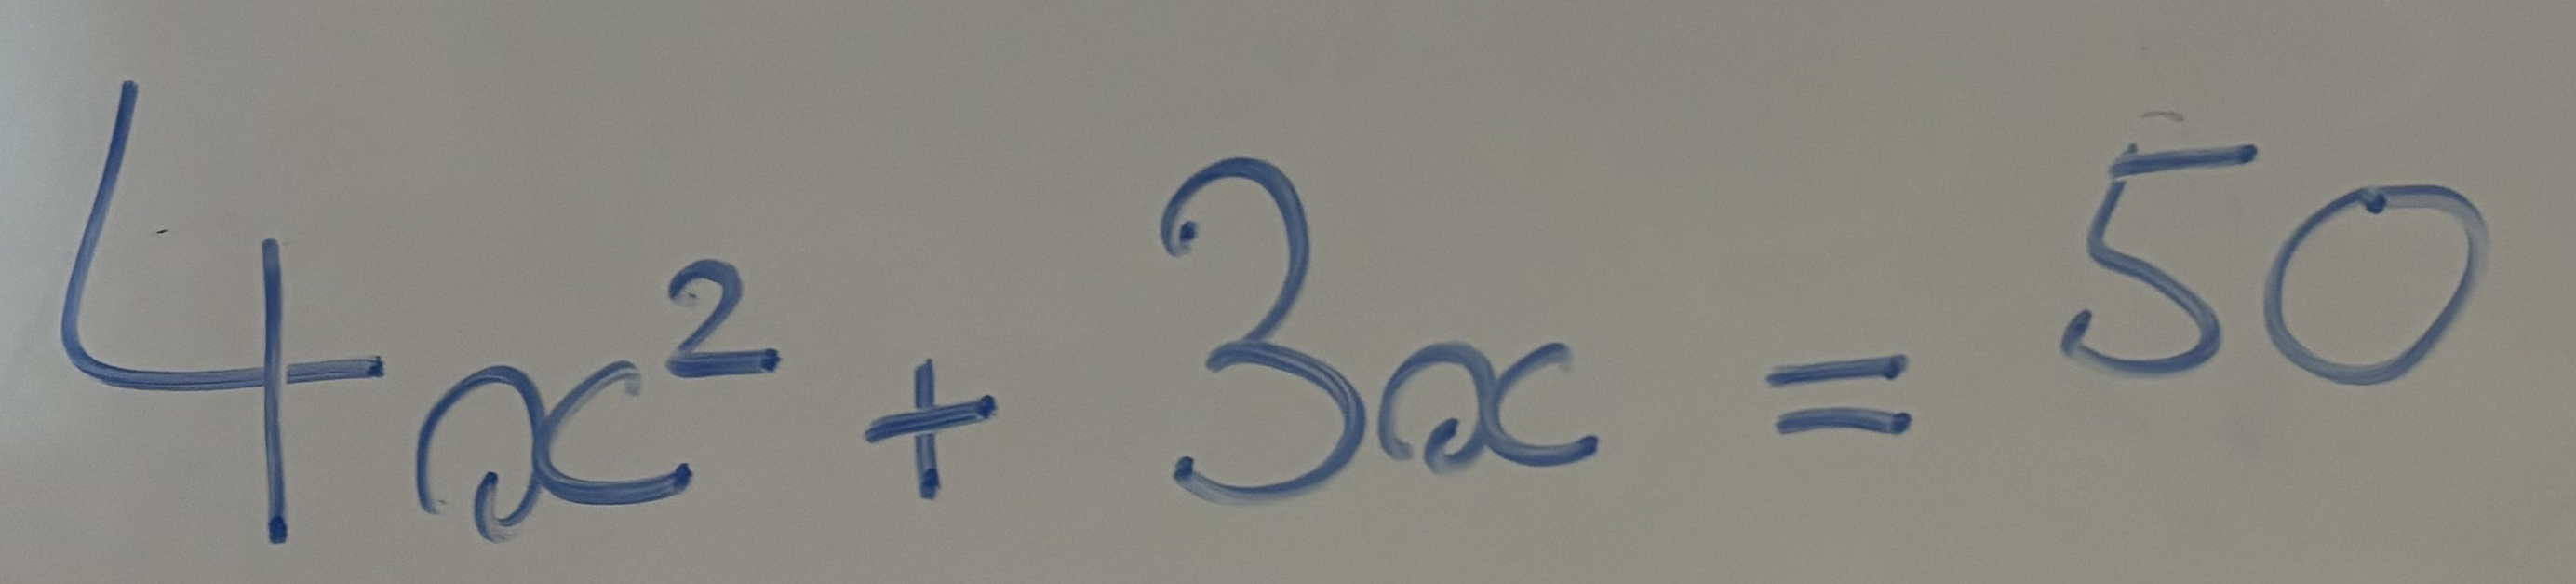 4x² + 3x = 50